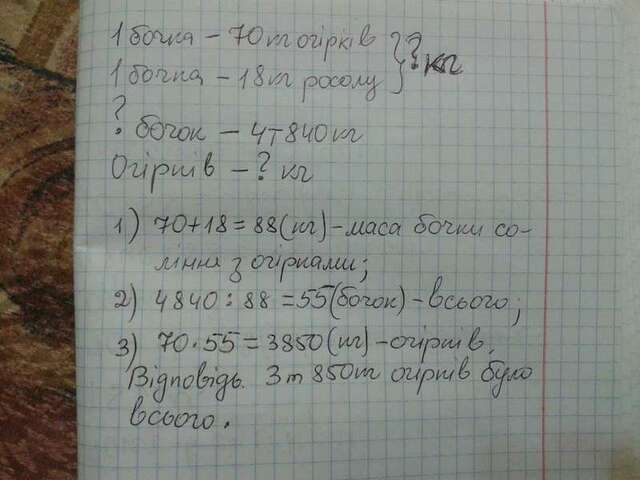 1 бочка – 70 т огірків } ? кг
1 бочка – 18 т росолу
? бочок – 4 т 840 кг
Огірків – ? кг
1) 70+18=88(кг)-маса бочки со-
ління з огірками;
2) 4840:88=55(бочок)-всього;
3) 70·55=3850(кг)-огірків.
Відповідь. 3 т 850 т огірків було
всього.